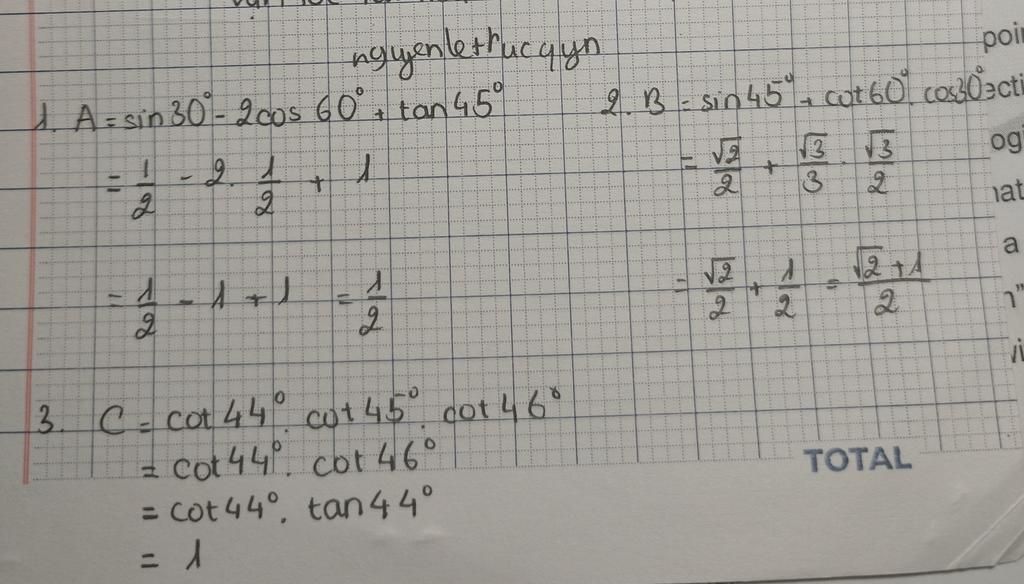 nguyenletrucqyn
1. A = sin30° - 2cos 60° + tan45°
= 1/2 - 2. 1/2 + 1
= 1/2 - 1 + 1 = 1/2
2. B = sin45° + cot60°. cos30°
= √2/2 + √3/3 . √3/2
= √2/2 + 1/2 = √2+1/2
3. C = cot44°. cot45°. cot46°
= cot44°. cot46°
= cot44°. tan44°
= 1
poi
ecti
og
nat
a
vi
TOTAL